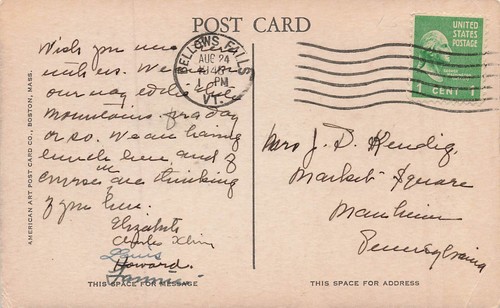 POST CARD
Wish you were
with us. We
our way
mountains for a day
or so. We are having
lunch here, and of
in
course are thinking
of you here.
Elizabeth
Charles
Lewis
Howard.
Fannie.
THIS SPACE FOR MESSAGE
AMERICAN ART POST CARD CO., BOSTON, MASS.
BELLOWS FALLS
AUG 24
1 PM
VT.
UNITED
STATES
POSTAGE
1 CENT 1
Mrs J. D. Hendig,
Market Square
Manheim
Pennsylvania
THIS SPACE FOR ADDRESS